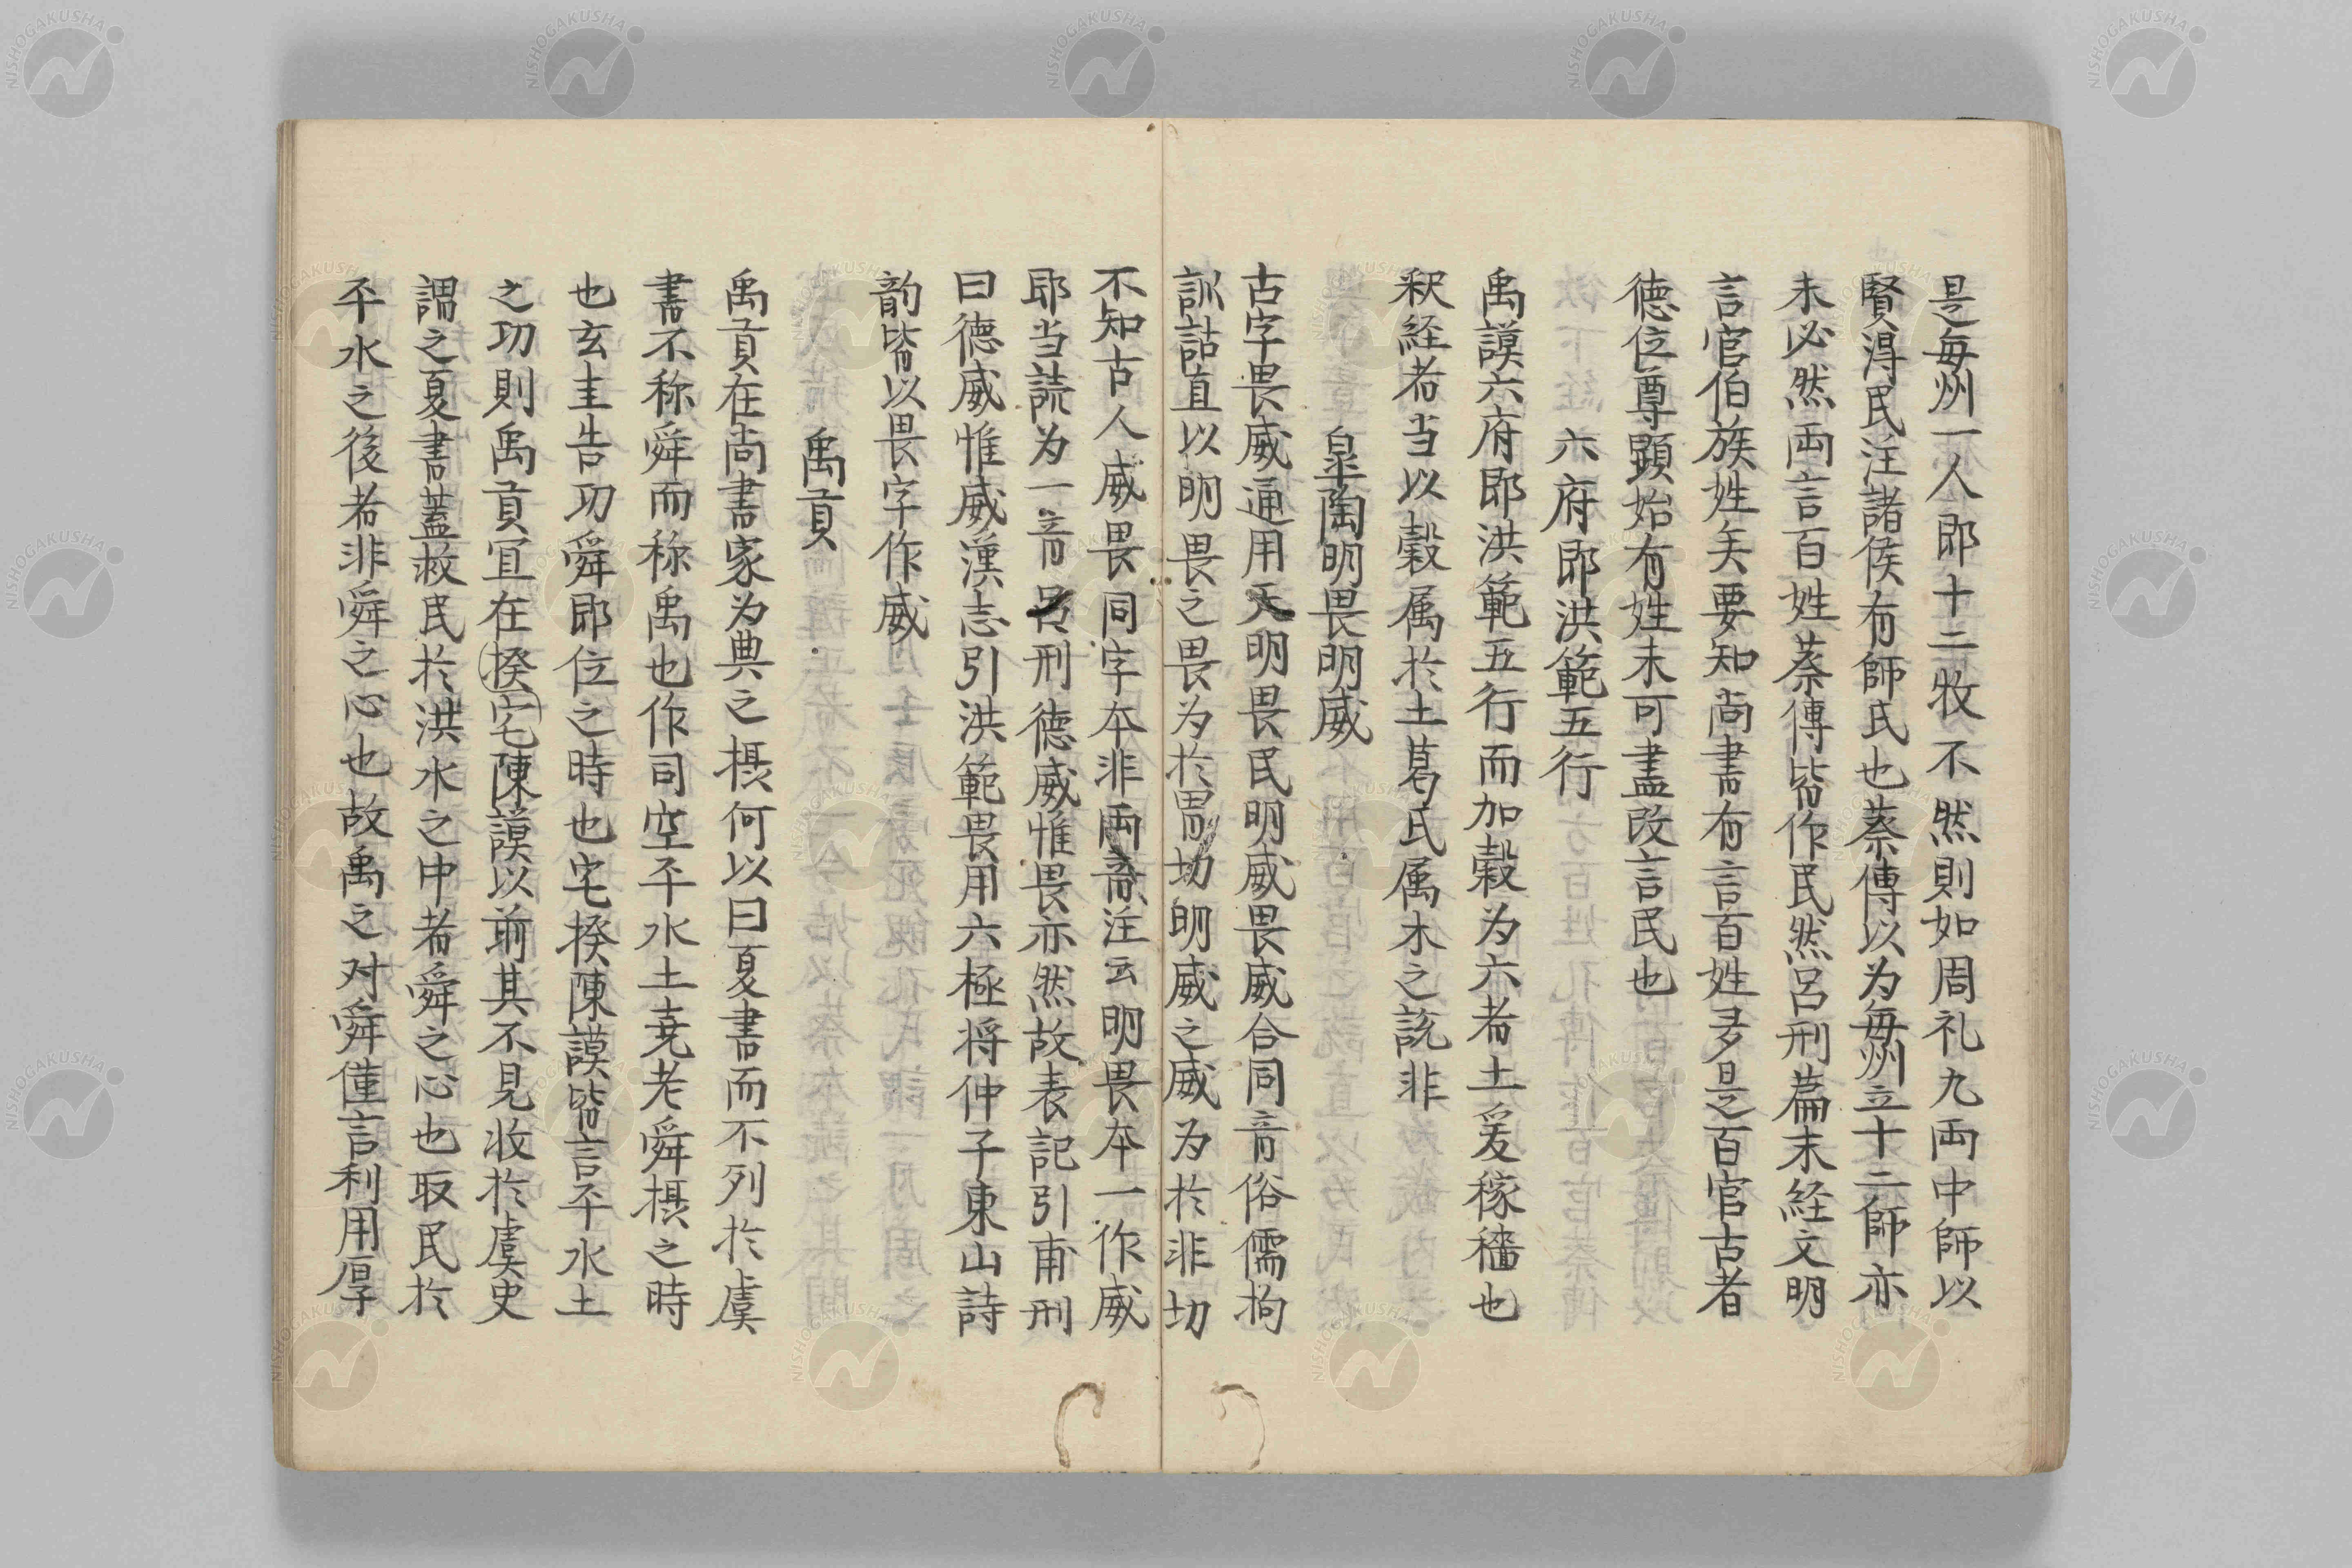 是毎州一人即十二牧不然則如周礼九両中師以
賢得民注諸侯有師氏也蔡傳以为毎州立十二師亦
未必然両言百姓蔡傳皆作民然呂刑篇末経文明
言官伯族姓矣要知尚書有言百姓多是百官古者
徳位尊顕始有姓未可盡改言民也
六府即洪範五行
禹謨六府即洪範五行而加穀为六者土爰稼穡也
釈経者当以穀属於土葛氏属木之説非
皐陶明畏畏明威
古字畏威通用天明畏民明威畏威合同音俗儒拘
訓詁直以明畏之畏为於胃切明威之威为於非切
不知古人威畏同字本非両音注云明畏本一作威
耶当読为一音呂刑徳威惟畏亦然故表記引甫刑
曰徳威惟威漢志引洪範畏用六極将仲子東山詩
韵皆以畏字作威
禹貢
禹貢在尚書家为典之摂何以曰夏書而不列於虞
書不称舜而称禹也作司空平水土尭老舜摂之時
也玄圭告功舜即位之時也宅揆陳謨皆言平水土
之功則禹貢宜在揆宅陳謨以前其不見收於虞史
謂之夏書蓋救民於洪水之中者舜之心也取民於
平水之後者非舜之心也故禹之对舜僅言利用厚
NISHOGAKUSHA